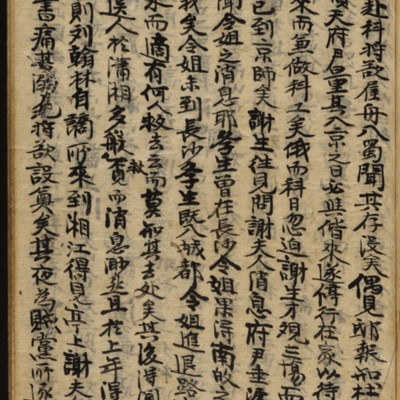 赴科將欲倨母入蜀聞其存沒矣偶見邸報知杜
順天府尹量其入京之日必與偕來遂停行在家以待
來而兼做科工矣俄而科日忽迫謝生才現三場而
已到京師矣謝生往見問謝夫人消息府尹垂
聞令姐之消息耶李生曾在長沙令姐果得南敀之
我矣令姐未到長沙李生旣入城都令姐進退路
水而適有何人救去云而莫知其去處矣其後得聞
送人於瀟湘多般救覓而消息眇然且於上年得
則列翰林自謫所來到湘江得見亭上謝夫
書痛其溺死將欲設奠矣其夜為賊黨所逐